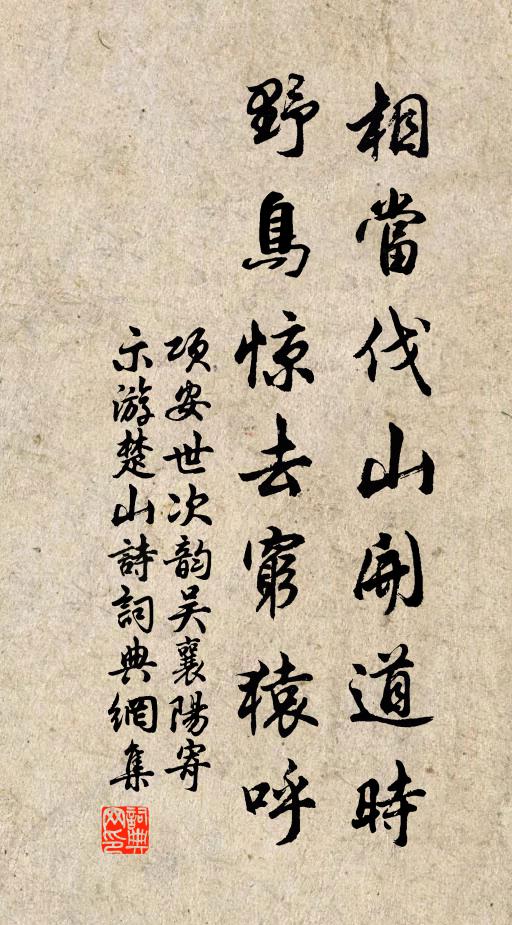 相當伐山開道時
野鳥惊去窮猿呼
项安世次韵吴襄陽寄
示游楚山詩詞典網集
詞典
网印